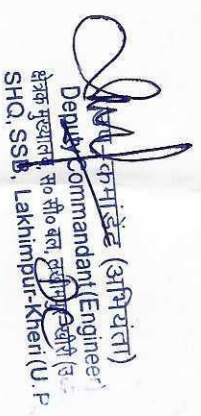 उप-कमांडेंट (अभियंता)
Deputy Commandant (Engineer)
क्षेत्रक मुख्यालय, स० सी० बल, लखीमपुर-खीरी (उ.
SHQ, SSB, Lakhimpur-Kheri (U. P